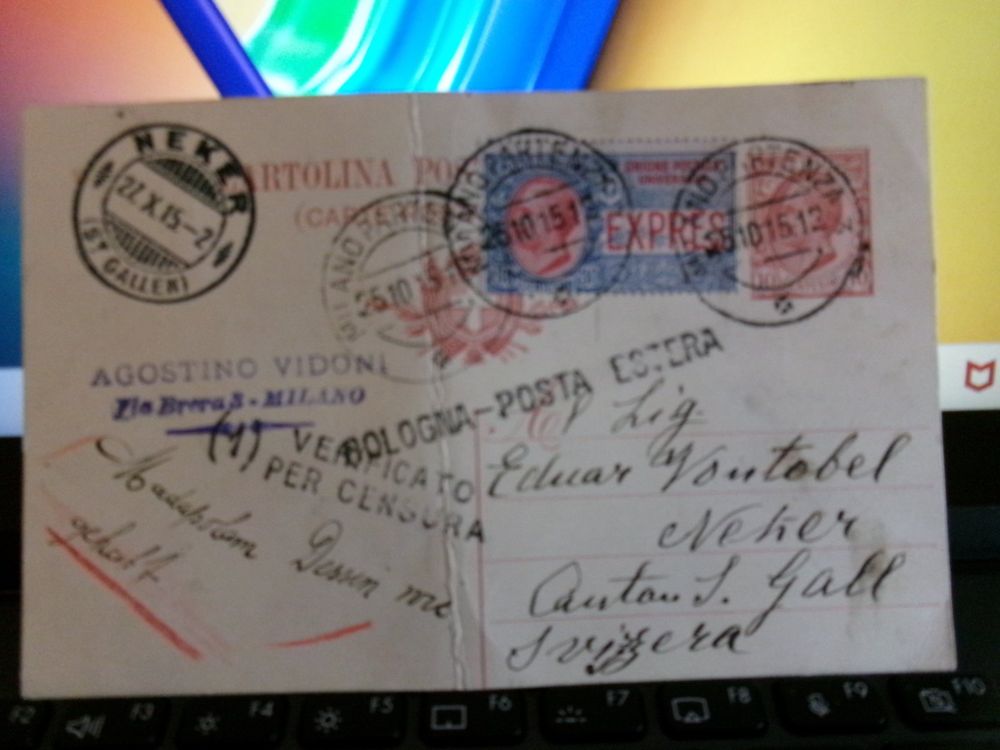 NEKER
27.X.15-2
(ST GALLEN)
CARTOLINA POS
UNIONE POSTALE UNIVERSALE
EXPRES
MILANO PARTENZA
26.10.15.1
MILANO PARTENZA
26.10.15.12
MILANO PARTENZA
26.10.15
AGOSTINO VIDONI
Via Brera 8 - MILANO
BOLOGNA-POSTA ESTERA
(1) VERIFICATO
PER CENSURA
Sig
Eduar Vontobel
Neker
Canton S. Gall
Svizzera
Madapolam Dessin
gehalt
F2
F3
F4
F5
F6
F7
F8
F9
F10